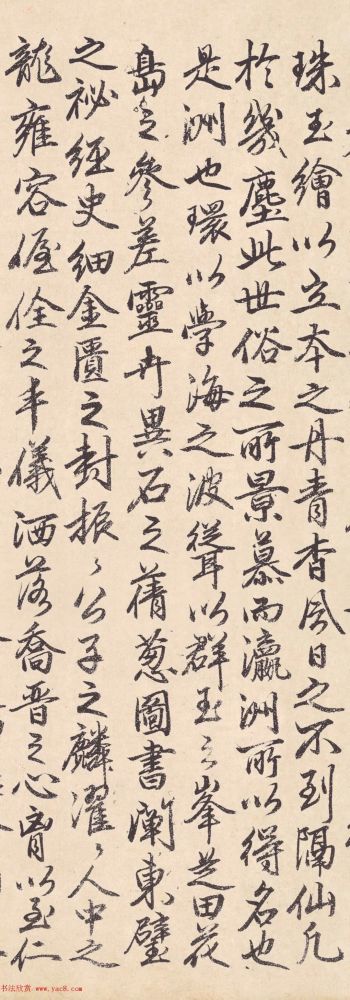 珠玉繪以立本之丹青杳風日之不到隔仙凡
於幾塵此世俗之所景慕而瀛洲所以得名也
是洲也環以學海之波聳以群玉之峯芝田花
島之參差靈卉異石之蒨蔥圖書闡東壁
之祕經史紬金匱之封振〻公子之麟濯〻人中之
龍雍容偓佺之丰儀洒落喬晉之心胷以至仁
书法欣赏 www.yac8.com